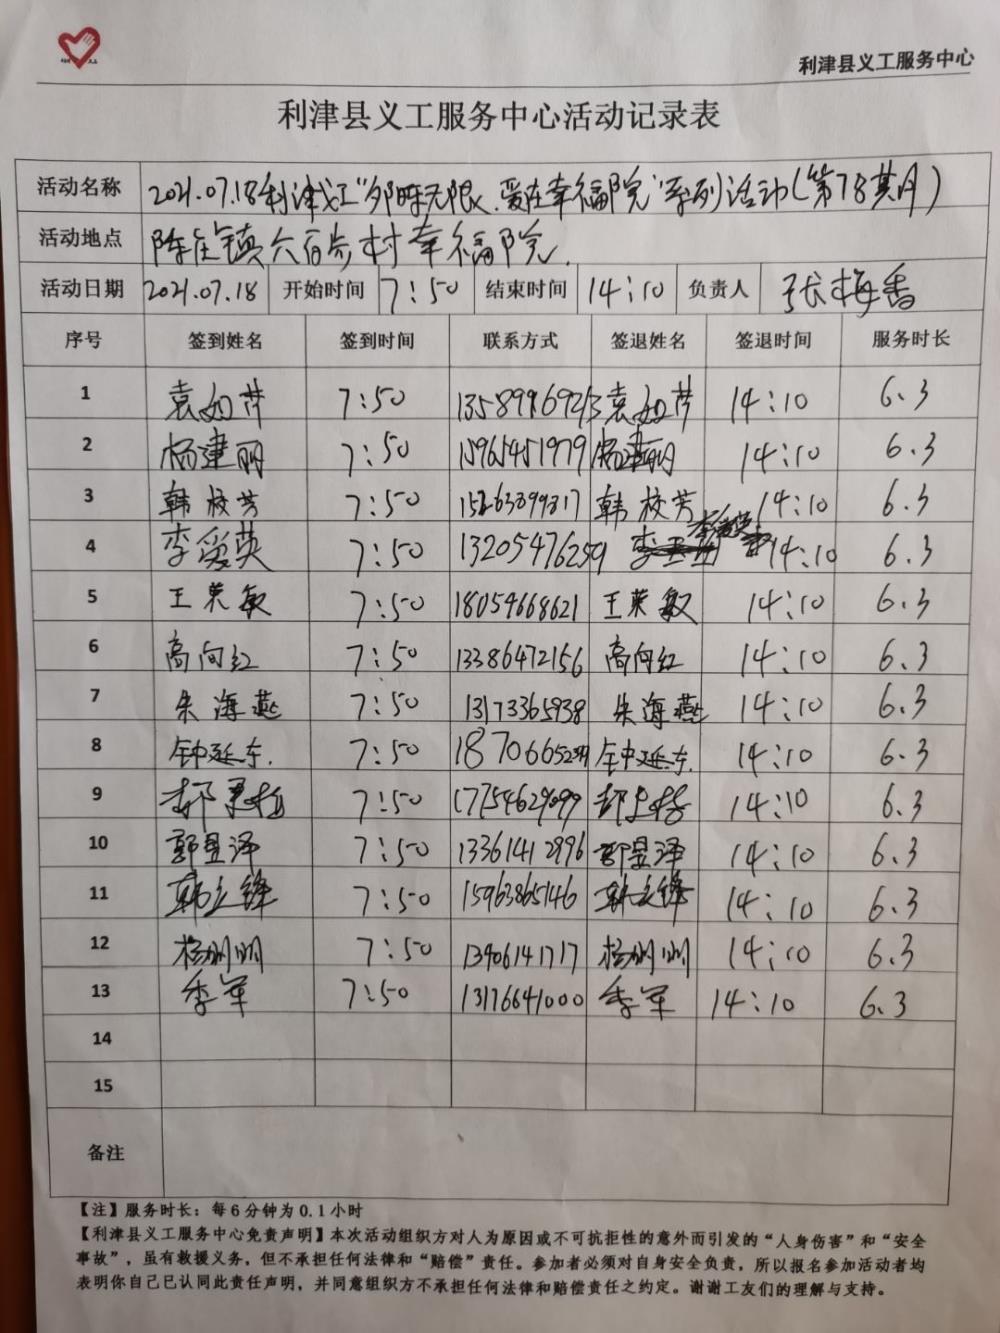 利津县义工服务中心
利津县义工服务中心活动记录表
活动名称 2021.07.18利津义工"夕阳无限、爱在幸福院"系列活动(第78期)
活动地点 陈庄镇六百步村幸福院
活动日期 2021.07.18 开始时间 7:50 结束时间 14:10 负责人 张梅香
序号 签到姓名 签到时间 联系方式 签退姓名 签退时间 服务时长
1 袁如芹 7:50 袁如芹 14:10 6.3
2 杨建丽 7:50 15965451979 杨建丽 14:10 6.3
3 韩校芳 7:50 韩校芳 14:10 6.3
4 李爱英 7:50 13205476259 李爱英 14:10 6.3
5 王荣敏 7:50 18054668621 王荣敏 14:10 6.3
6 高向红 7:50 13386472156 高向红 14:10 6.3
7 朱海燕 7:50 13173365938 朱海燕 14:10 6.3
8 钟延东. 7:50 钟延东. 14:10 6.3
9 7:50 17754629099 14:10 6.3
10 郭昱泽 7:50 13361412996 郭昱泽 14:10 6.3
11 韩立锋 7:50 15963865146 韩立锋 14:10 6.3
12 杨刚刚 7:50 13906141717 杨刚刚 14:10 6.3
13 季军 7:50 13176641000 季军 14:10 6.3
14
15
备注
【注】服务时长：每6分钟为0.1小时
【利津县义工服务中心免责声明】本次活动组织方对人为原因或不可抗拒性的意外而引发的“人身伤害”和“安全
事故”，虽有救援义务，但不承担任何法律和“赔偿”责任。参加者必须对自身安全负责，所以报名参加活动者均
表明你自己已认同此责任声明，并同意组织方不承担任何法律和赔偿责任之约定。谢谢工友们的理解与支持。